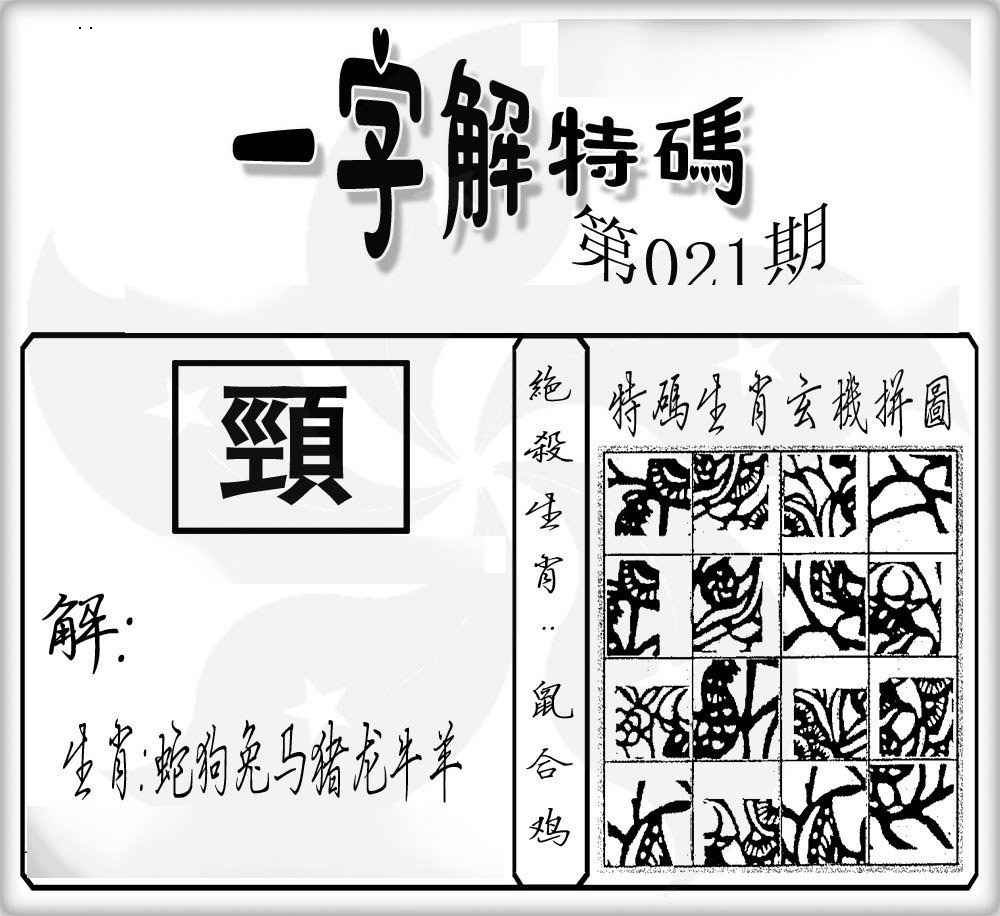 一字解特碼
第021期
頸
解:
生肖:蛇狗兔马猪龙牛羊
絶殺生肖:鼠合鸡
特碼生肖玄機拼圖